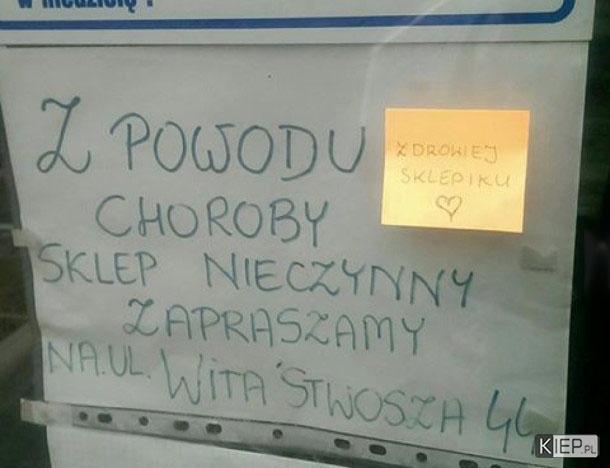 w niedzielę?
Z POWODU
CHOROBY
SKLEP NIECZYNNY
ZAPRASZAMY
NA.UL. WITA STWOSZA 44
ZDROWIEJ
SKLEPIKU
♡
KIEP.PL